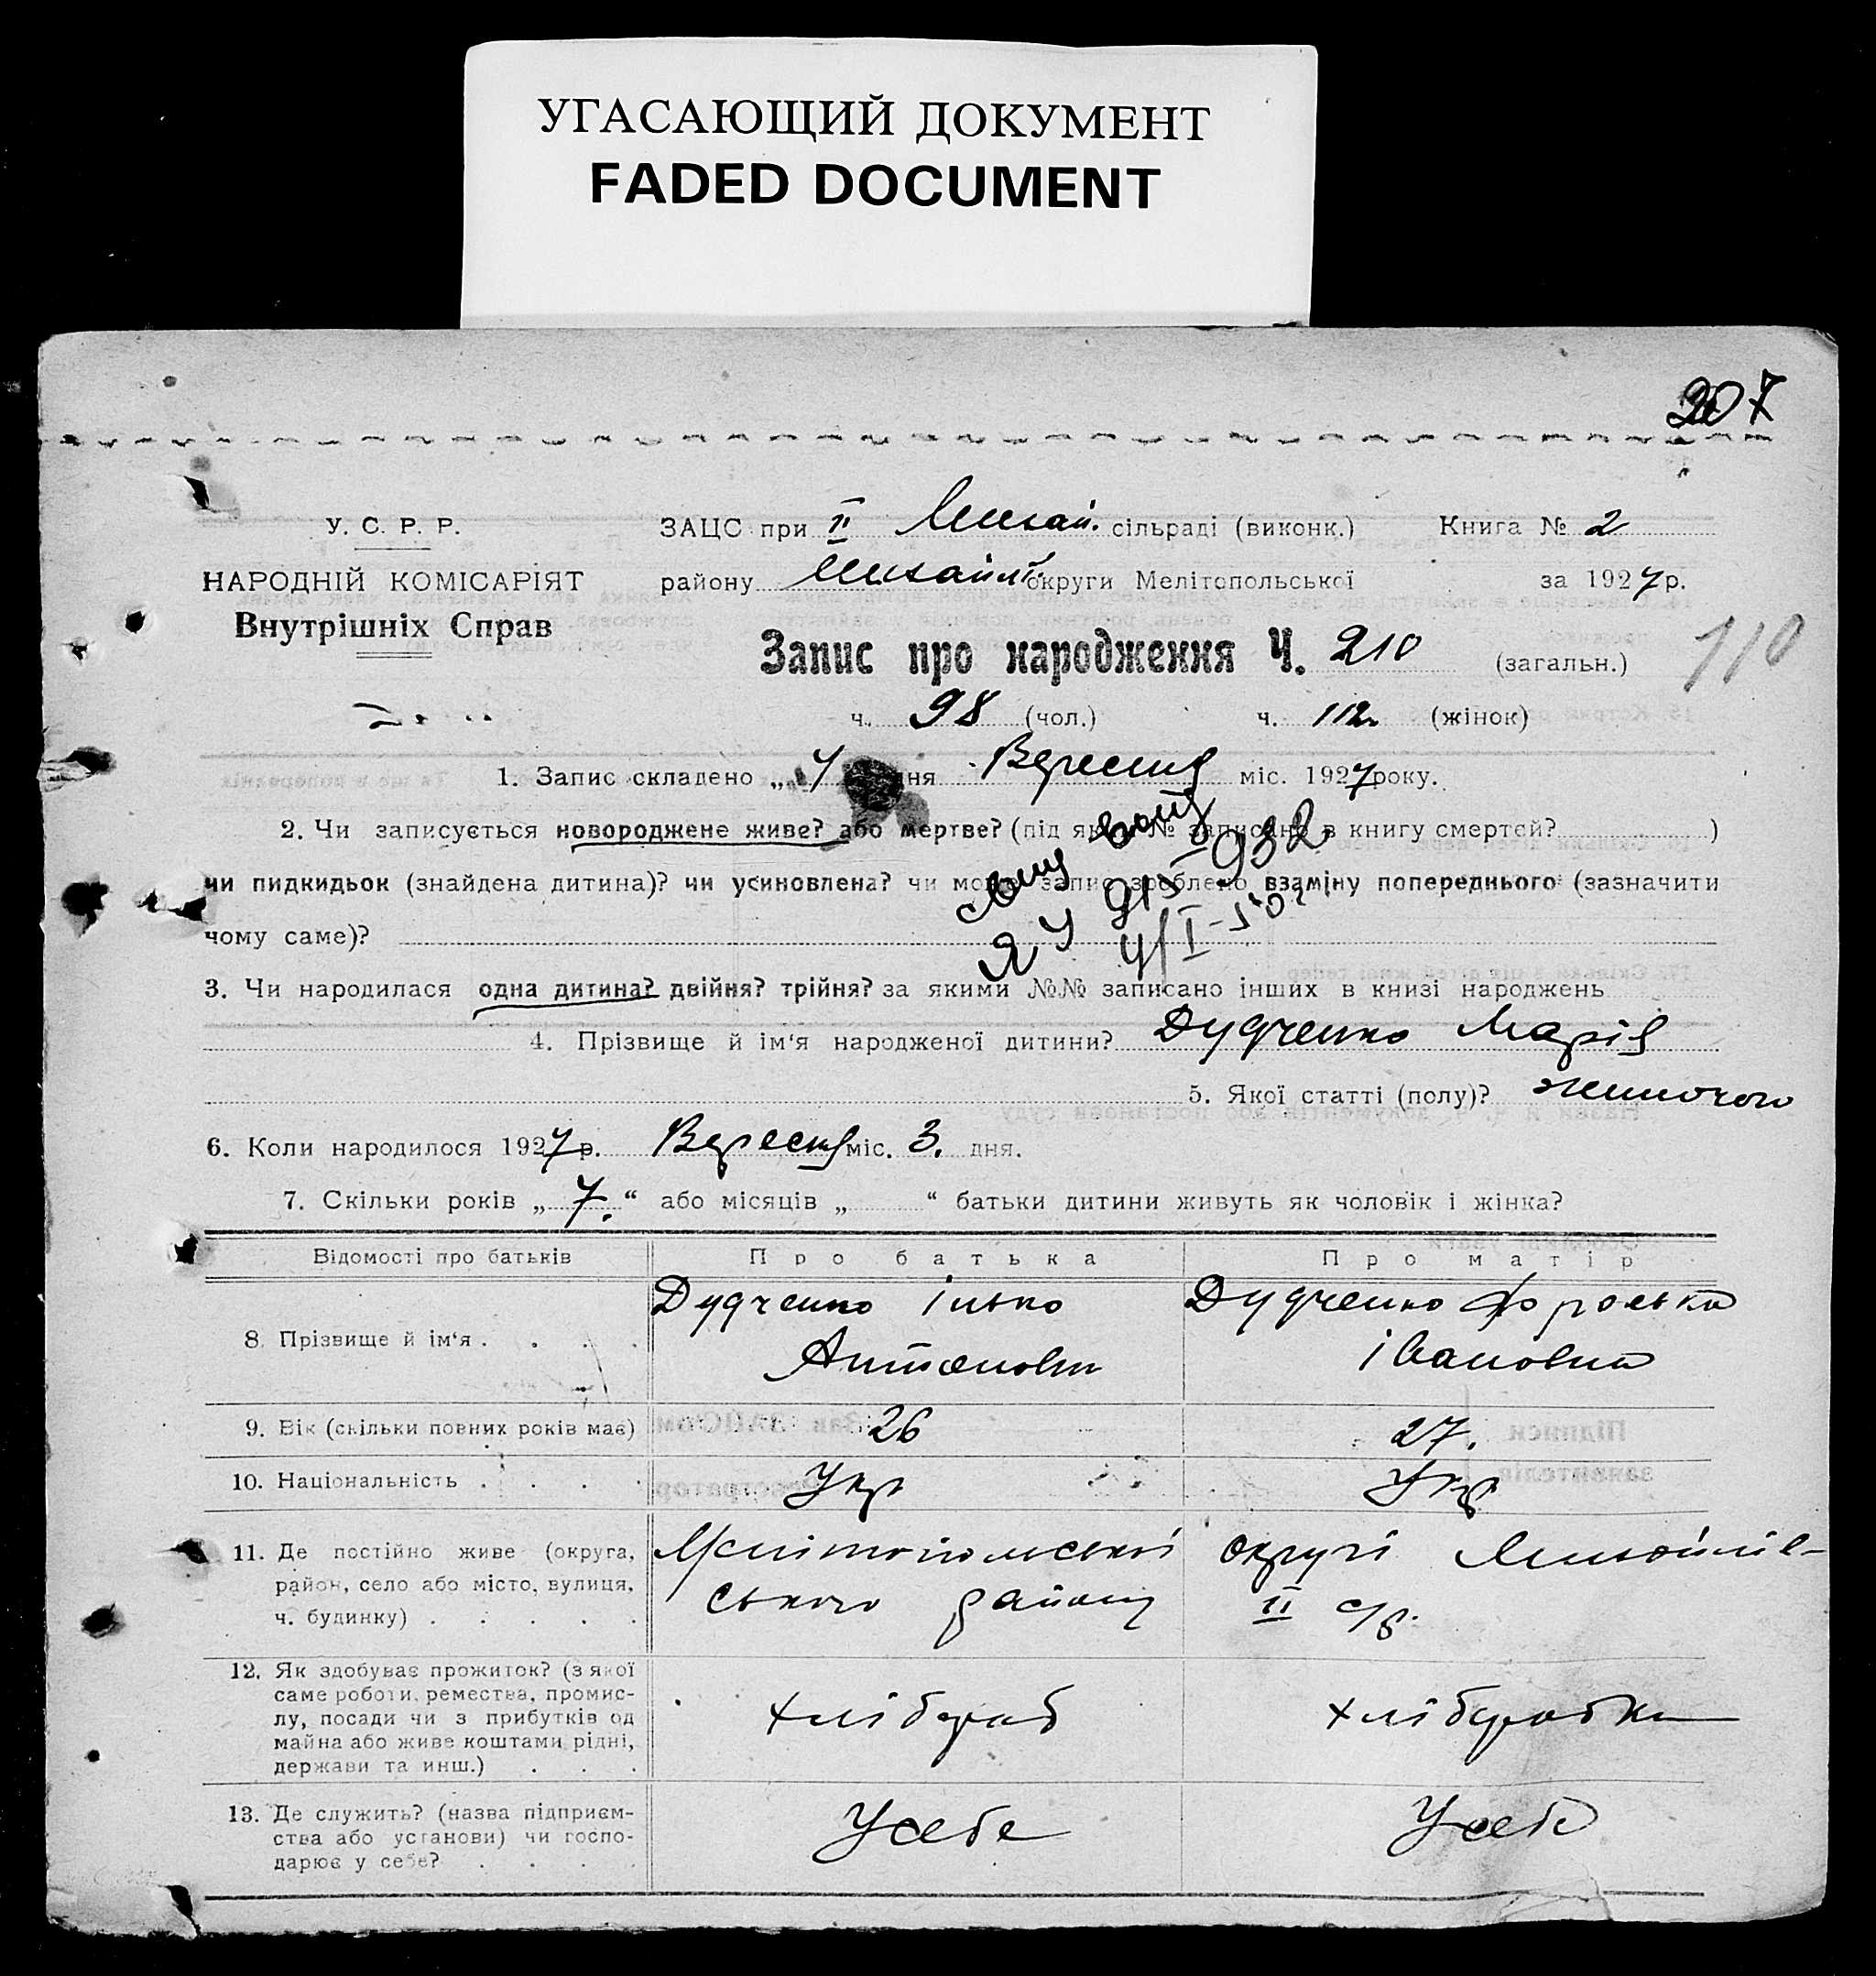 УГАСАЮЩИЙ ДОКУМЕНТ
FADED DOCUMENT
207
У. С. Р. Р.
НАРОДНІЙ КОМІСАРІЯТ
Внутрішніх Справ
ЗАЦС при ІІ Михай. сільраді (виконк.) Книга № 2
району Михайл. округи Мелітопольської за 1927 р.
Запис про народження Ч. 210 (загальн.)
110
ч. 98 (чол.) ч. 112 (жінок)
1. Запис складено „ 7 дня Вересня міс. 1927 року.
2. Чи записується новороджене живе? або мертве? (під яким № записано в книгу смертей? )
чи пидкидьок (знайдена дитина)? чи усиновлена? чи може запис зроблено взаміну попереднього (зазначити
чому саме)?
3. Чи народилася одна дитина? двійня? трійня? за якими №№ записано інших в книзі народжень
4. Прізвище й ім'я народженої дитини? Дудченко Марія
5. Якої статті (полу)? жиночого
6. Коли народилося 1927 р. Вересня міс. 3. дня.
7. Скільки років „ 7. “ або місяців „ “ батьки дитини живуть як чоловік і жінка?
Відомості про батьків Про батька Про матір
8. Прізвище й ім'я . . . .
Дудченко Ілько
Антонович
Дудченко
Івановна
9. Вік (скільки повних років має) 26 27.
10. Національність . . . . Укр Укр
11. Де постійно живе (округа,
район, село або місто, вулиця,
ч. будинку) . . . . .
Мелітопольської округи Михайлів-
ського району ІІ с/р.
12. Як здобуває прожиток? (з якої
саме роботи, ремества, промис-
лу, посади чи з прибутків од
майна або живе коштами рідні,
держави та инш.) . . .
хлібороб хліборобка
13. Де служить? (назва підприєм-
ства або установи) чи госпо-
дарює у себе? . . . .
У себе У себе